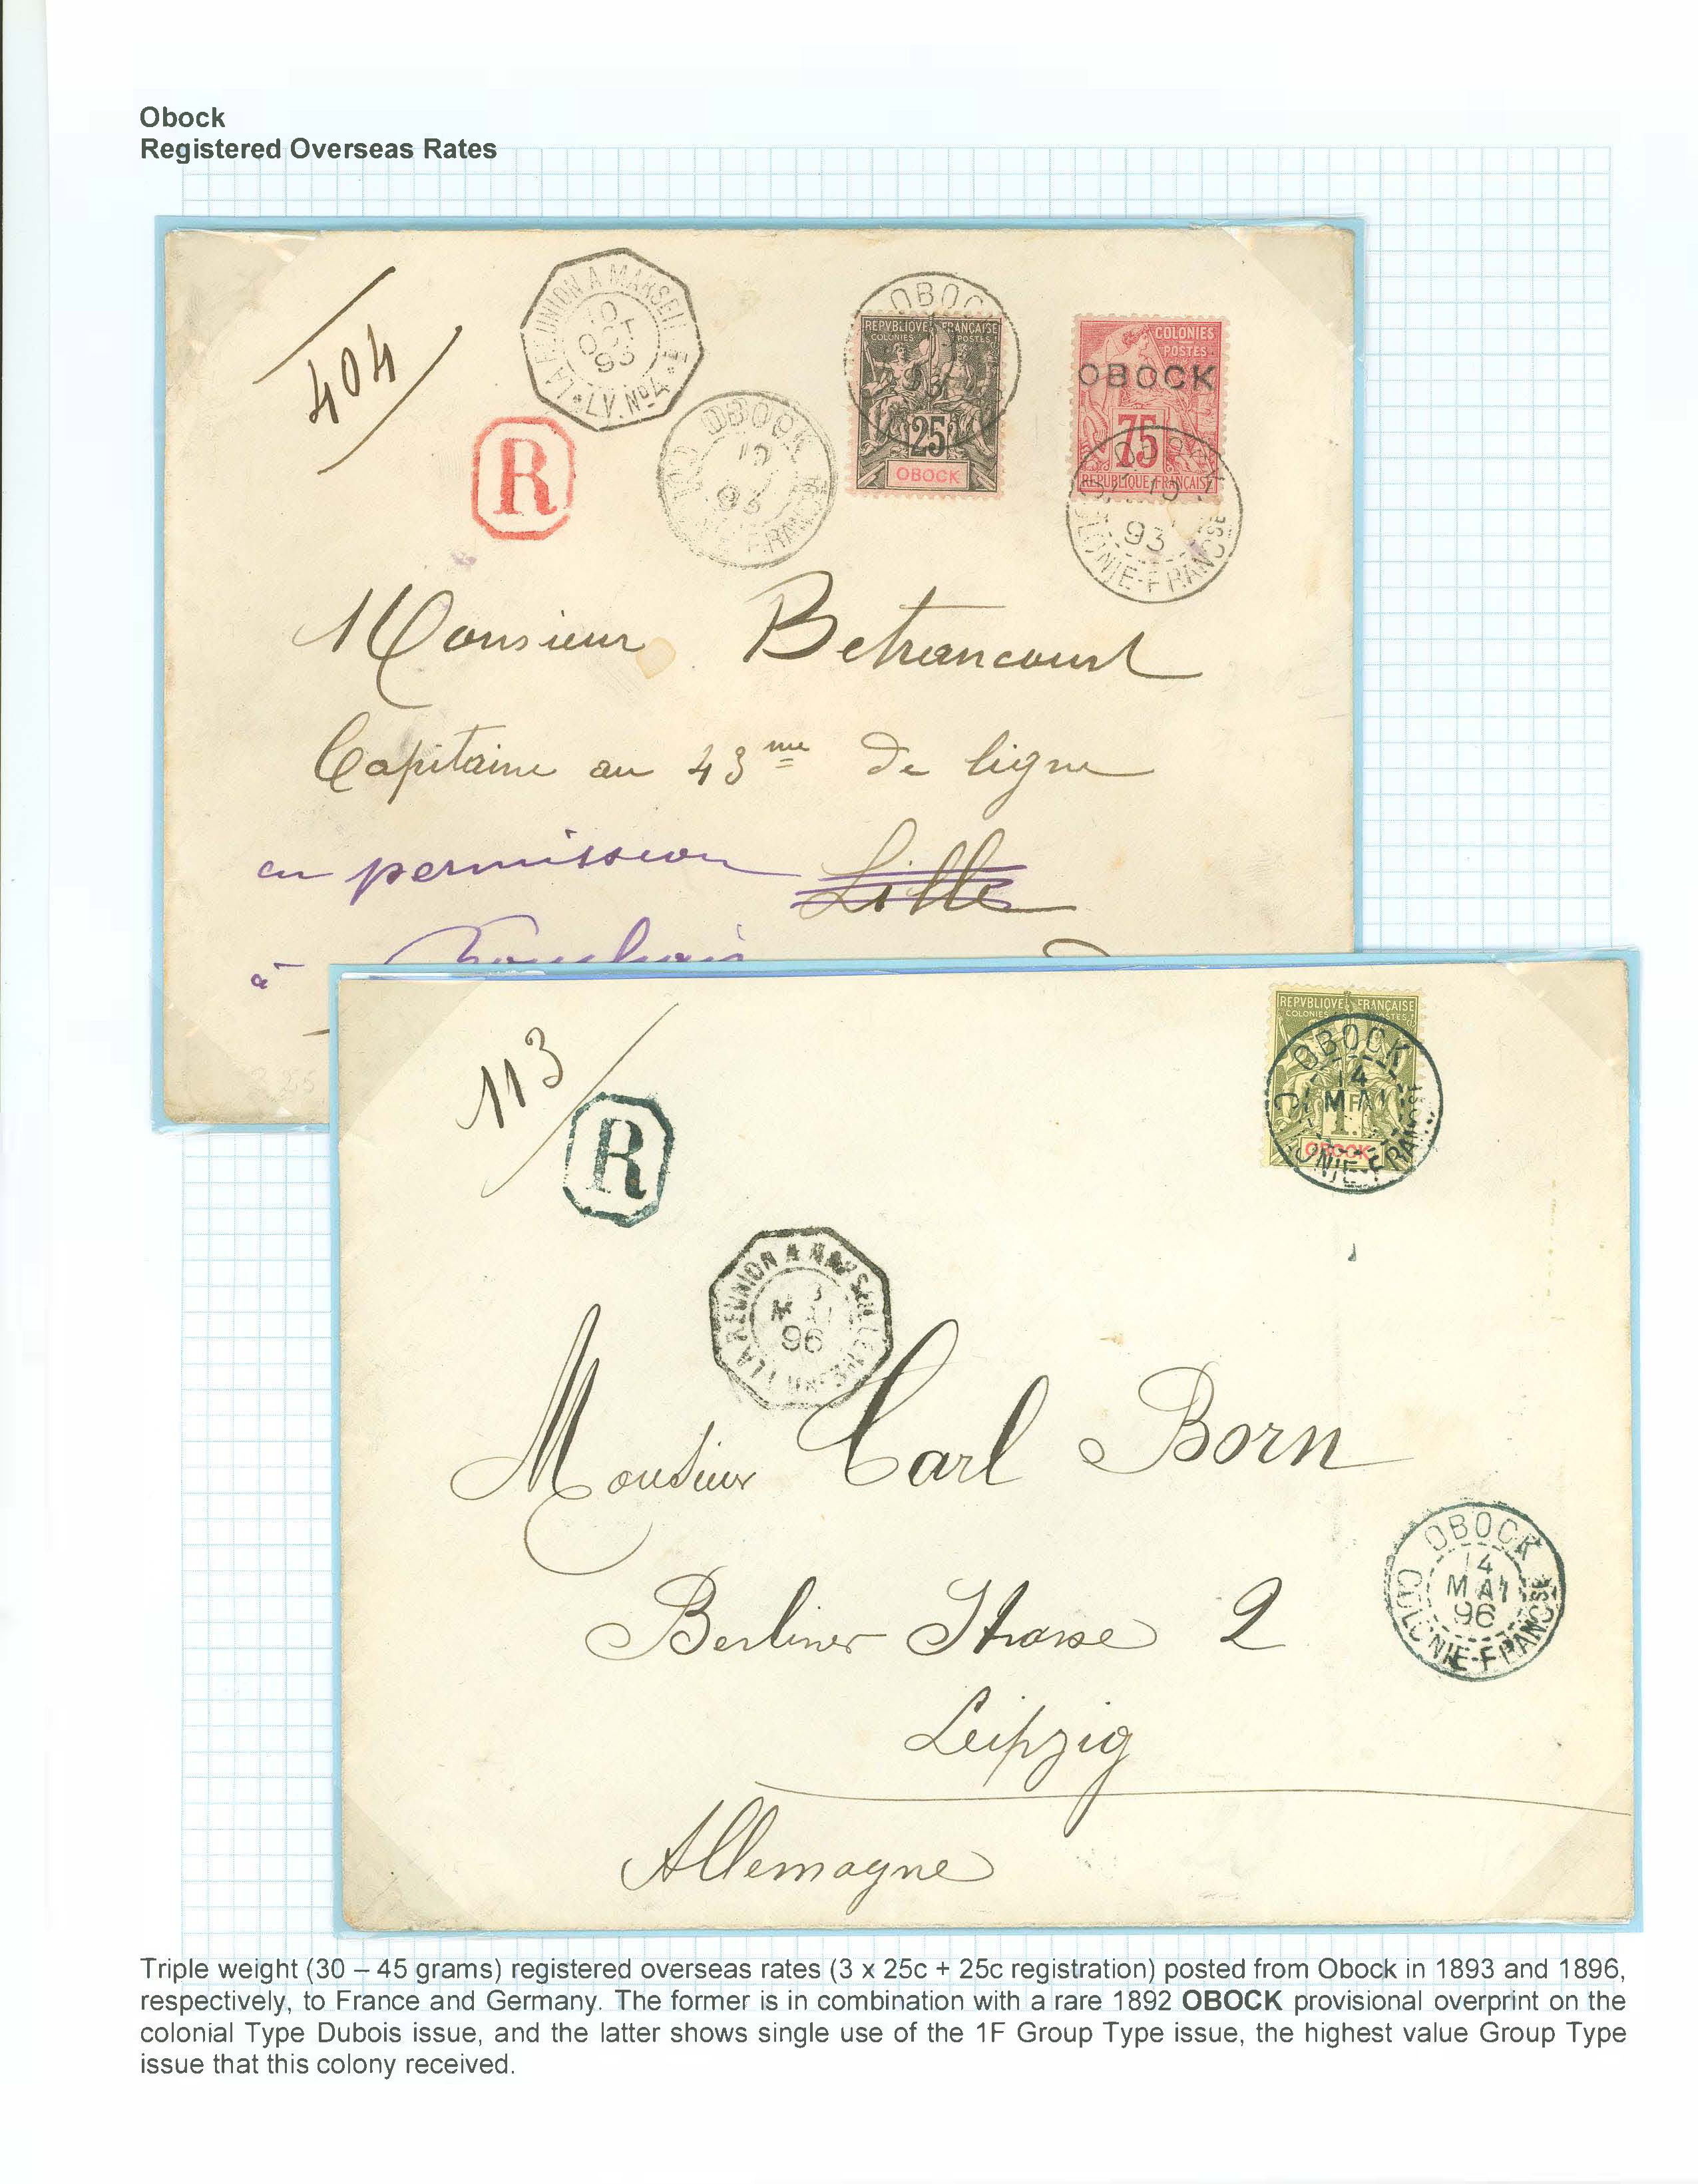 Obock
Registered Overseas Rates
404
LA RÉUNION A MARSEILLE
10
OCT
93
L.V. Nº4
R
OBOCK
93
REPVBLIQVE FRANÇAISE
COLONIES POSTES
25
OBOCK
COLONIES
POSTES
OBOCK
75
REPUBLIQUE FRANÇAISE
93
COLONIE-FRANCSE
Monsieur Betrancourt
Capitaine au 43me de ligne
en permission Lille
à
113
R
REPVBLIQVE FRANÇAISE
COLONIES POSTES
1F
OBOCK
OBOCK
14
MAI
COLONIE-FRANCSE
LA REUNION A MARSEILLE
MAI
96
Monsieur Carl Born
Berliner Strasse 2
OBOCK
14
MAI
96
COLONIE-FRANCSE
Leipzig
Allemagne
Triple weight (30 – 45 grams) registered overseas rates (3 x 25c + 25c registration) posted from Obock in 1893 and 1896,
respectively, to France and Germany. The former is in combination with a rare 1892 OBOCK provisional overprint on the
colonial Type Dubois issue, and the latter shows single use of the 1F Group Type issue, the highest value Group Type
issue that this colony received.